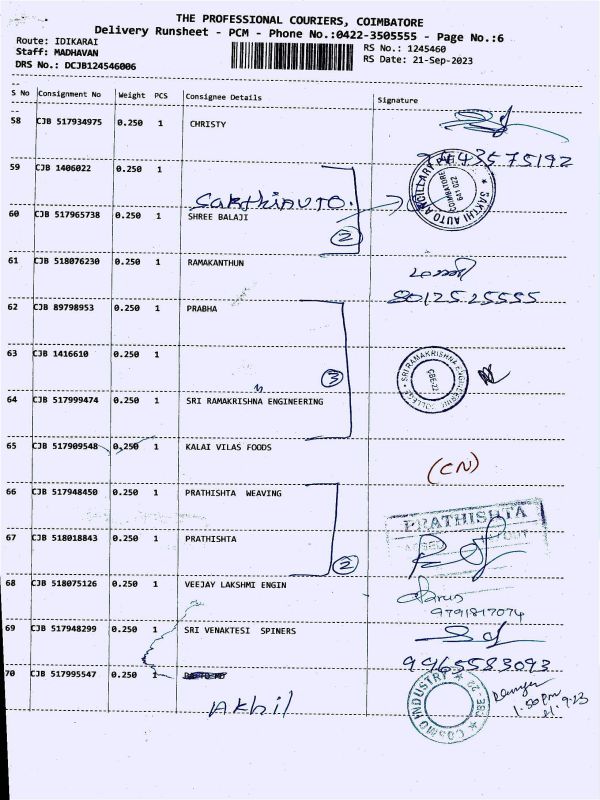 THE PROFESSIONAL COURIERS, COIMBATORE
Delivery Runsheet - PCM - Phone No.:0422-3505555 - Page No.:6
Route: IDIKARAI
RS No.: 1245460
Staff: MADHAVAN
RS Date: 21-Sep-2023
DRS No.: DCJB124546006
S No Consignment No Weight PCS Consignee Details Signature
58 CJB 517934975 0.250 1 CHRISTY
7443575192
59 CJB 1406022 0.250 1
SAKTHI AUTO ANCILLARY COIMBATORE 641 022
SakthiAUTO.
60 CJB 517965738 0.250 1 SHREE BALAJI
2
61 CJB 518076230 0.250 1 RAMAKANTHUN
8012525555
62 CJB 89798953 0.250 1 PRABHA
63 CJB 1416610 0.250 1
3
SRI RAMAKRISHNA ENGINEERING COLLEGE CBE-22
64 CJB 517999474 0.250 1 SRI RAMAKRISHNA ENGINEERING
65 CJB 517909548 0.250 1 KALAI VILAS FOODS
(CN)
66 CJB 517948450 0.250 1 PRATHISHTA WEAVING
PRATHISHTA
67 CJB 518018843 0.250 1 PRATHISHTA
2
68 CJB 518075126 0.250 1 VEEJAY LAKSHMI ENGIN
9791817074
69 CJB 517948299 0.250 1 SRI VENAKTESI SPINERS
9965583093
70 CJB 517995547 0.250 1
COSMO INDUSTRY CBE-22
Akhil